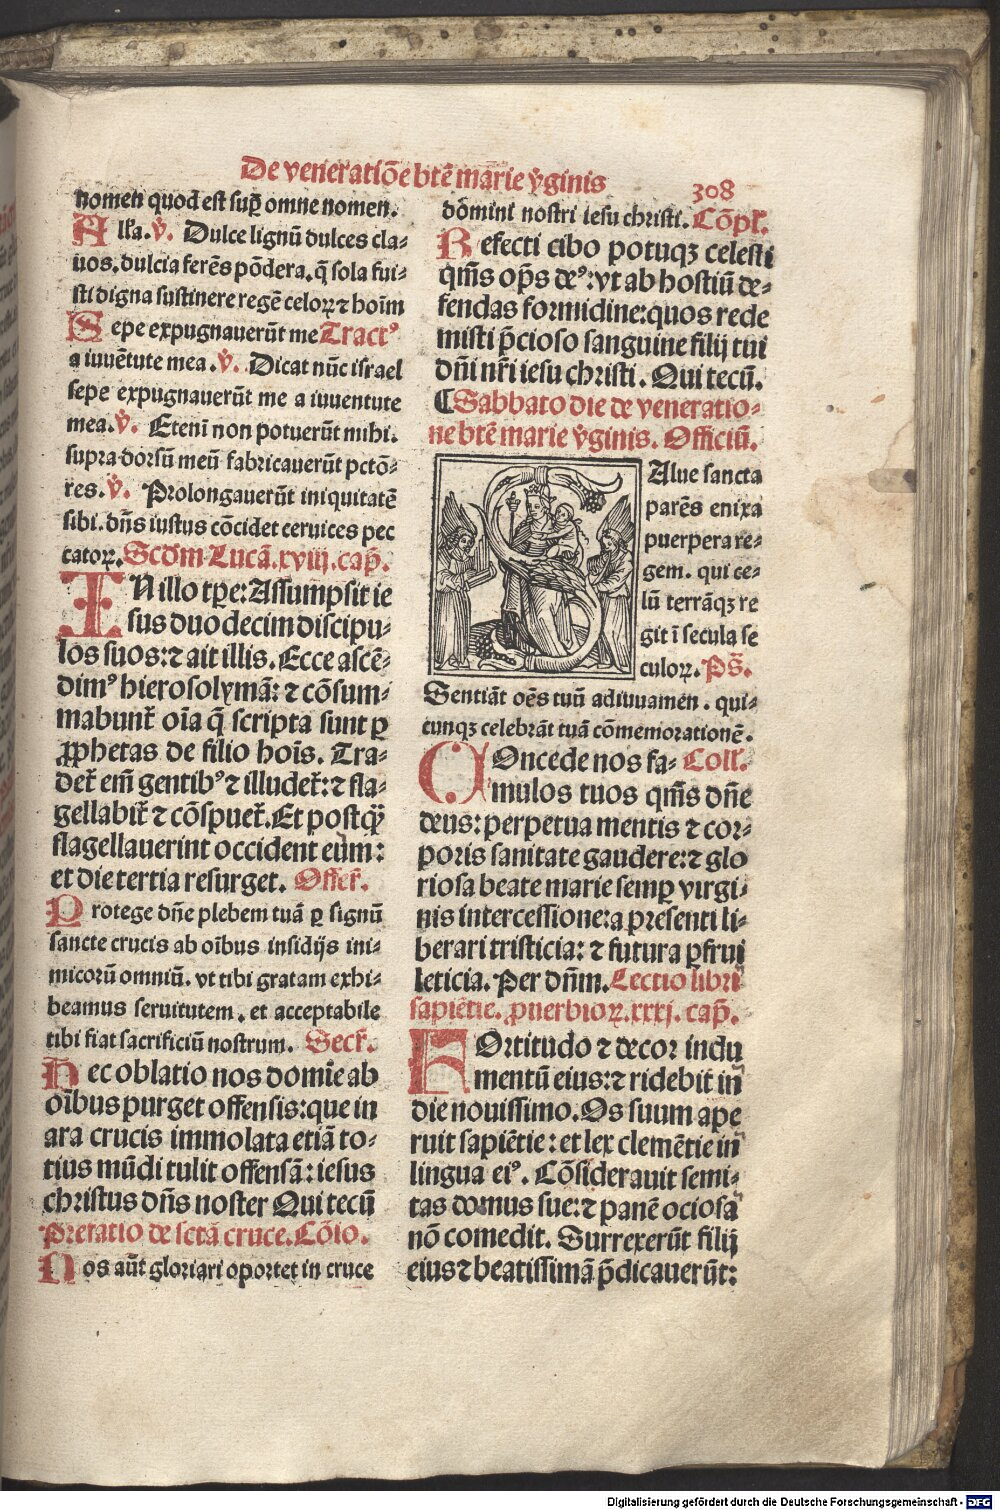 De veneratiõe btẽ marie v̾ginis
308
nomen quod est sup̱ omne nomen.
Alľa. v̾. Dulce lignũ dulces cla⸗
uos. dulcia ferẽs põdera. q̃ sola fui⸗
sti digna sustinere regẽ celoꝝ ⁊ hoĩm
Sepe expugnauerũt me Tractꝰ
a iuuẽtute mea. v̾. Dicat nũc israel
sepe expugnauerũt me a iuuentute
mea. v̾. Etenĩ non potuerũt mihi.
supra dorsũ meũ fabricauerũt pctõ⸗
res. v̾. Prolongauerũt iniquitatẽ
sibi. dñs iustus cõcidet ceruices pec
catoꝝ. Scďm Lucã. xviij. cap̃.
IN illo tꝑe: Assumpsit ie
sus duodecim discipu⸗
los suos: ⁊ ait illis. Ecce ascẽ⸗
dimꝰ hierosolymã: ⁊ cõsum⸗
mabunť oĩa q̃ scripta sunt ꝑ
ꝓphetas de filio hoĩs. Tra⸗
deť em̃ gentibꝰ ⁊ illudeť: ⁊ fla⸗
gellabiť ⁊ cõspueť. Et postq̃
flagellauerint occident eum:
et die tertia resurget. Offeř.
Protege dñe plebem tuã ꝑ signũ
sancte crucis ab oĩbus insidijs ini⸗
micorũ omniũ. vt tibi gratam exhi⸗
beamus seruitutem. et acceptabile
tibi fiat sacrificiũ nostrum. Secř.
Hec oblatio nos domĩe ab
oĩbus purget offensis: que in
ara crucis immolata etiã to⸗
tius mũdi tulit offensã: iesus
christus dñs noster Qui tecũ
Prefatio de sctã cruce. Cõio.
Nos aũt gloriari oportet in cruce
domini nostri iesu christi. Cõpľ.
Refecti cibo potuqꝫ celesti
qm̃s op̃s deꝰ: vt ab hostiũ de⸗
fendas formidine: quos rede
misti p̃cioso sanguine filij tui
dñi nr̃i iesu christi. Qui tecũ.
¶ Sabbato die de veneratio⸗
ne btẽ marie v̾ginis. Officiũ.
SAlue sancta
parẽs enixa
puerpera re⸗
gem. qui ce⸗
lũ terrãqꝫ re
git ĩ secula se
culoꝝ. Ps̃.
Sentiãt oẽs tuũ adiuuamen. qui⸗
cunqꝫ celebrãt tuã cõmemorationẽ.
COncede nos fa⸗ Colľ.
mulos tuos qm̃s dñe
deus: perpetua mentis ⁊ cor⸗
poris sanitate gaudere: ⁊ glo
riosa beate marie semꝑ virgi⸗
nis intercessione: a presenti li⸗
berari tristicia: ⁊ futura ꝑfrui
leticia. Per dñm. Lectio libri
sapiẽtie. ꝓuerbioꝝ. xxxj. cap̃.
FOrtitudo ⁊ decor indu
mentũ eius: ⁊ ridebit in
die nouissimo. Os suum ape
ruit sapiẽtie: et lex clemẽtie in
lingua eiꝰ. Cõsiderauit semi⸗
tas domus sue: ⁊ panẽ ociosa
nõ comedit. Surrexerũt filij
eius ⁊ beatissimã p̃dicauerũt:
Digitalisierung gefördert durch die Deutsche Forschungsgemeinschaft - DFG